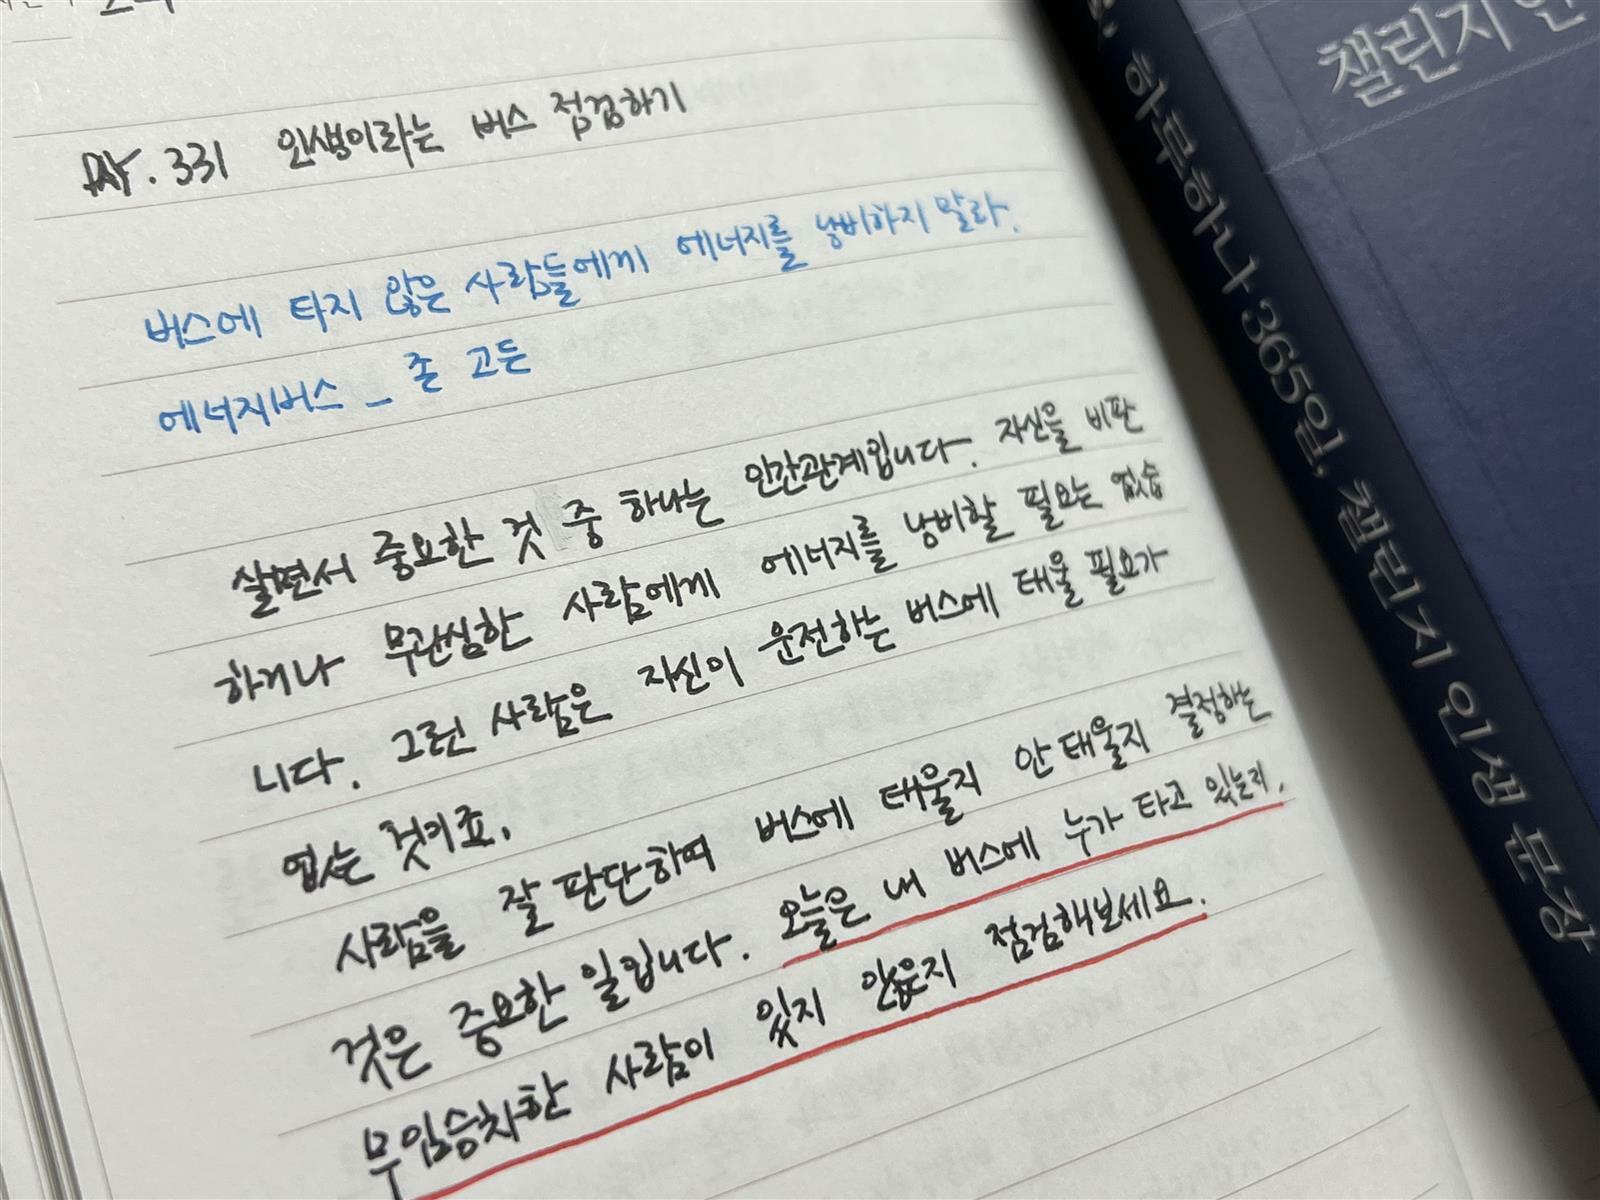 DAY. 331 인생이라는 버스 점검하기
버스에 타지 않은 사람들에게 에너지를 낭비하지 말라.
에너지버스 _ 존 고든
살면서 중요한 것 중 하나는 인간관계입니다. 자신을 비판
하거나 무관심한 사람에게 에너지를 낭비할 필요는 없습
니다. 그런 사람은 자신이 운전하는 버스에 태울 필요가
없는 것이죠.
사람을 잘 판단하여 버스에 태울지 안 태울지 결정하는
것은 중요한 일입니다. 오늘은 내 버스에 누가 타고 있는지,
무임승차한 사람이 있지 않은지 점검해보세요.
하루하나 365일, 챌린지 인생 문장
챌린지 인